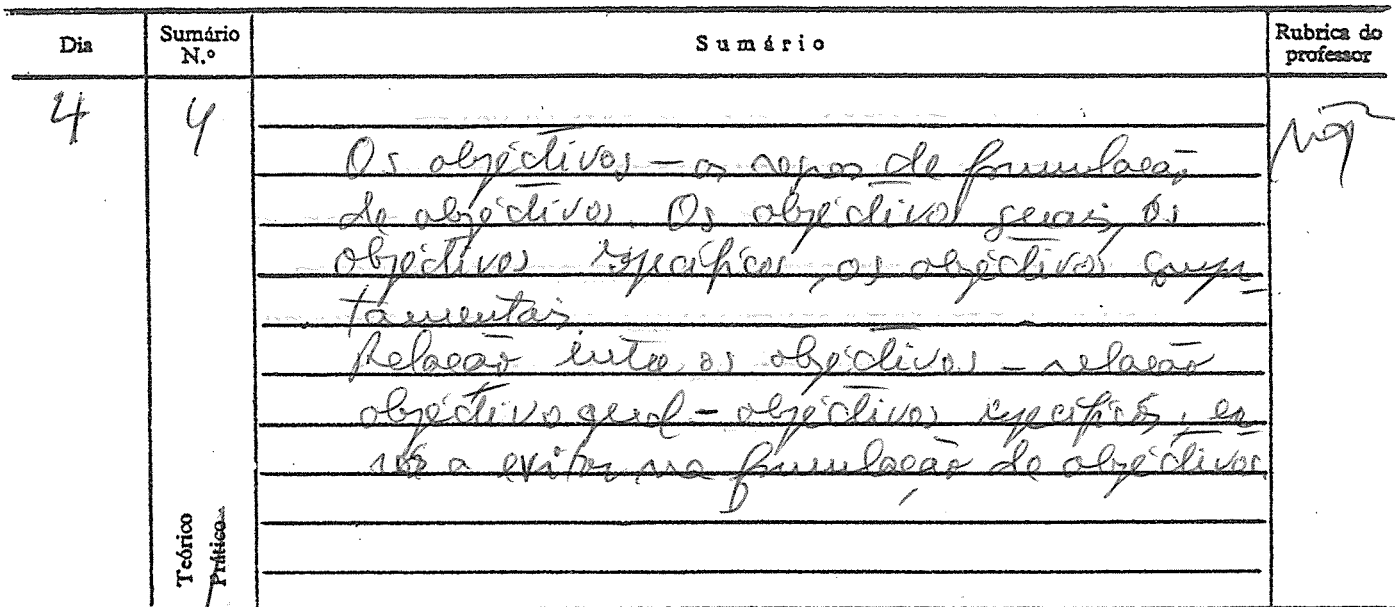 Dia Sumário N.º Sumário Rubrica do professor
4 4
Os objectivos — as regras de formulação
de objectivos. Os objectivos gerais, os
objectivos específicos, os objectivos compor-
tamentais
Relação entre os objectivos — relação
objectivo geral — objectivos específicos, er-
ros a evitar na formulação de objectivos
Teórico
Prático